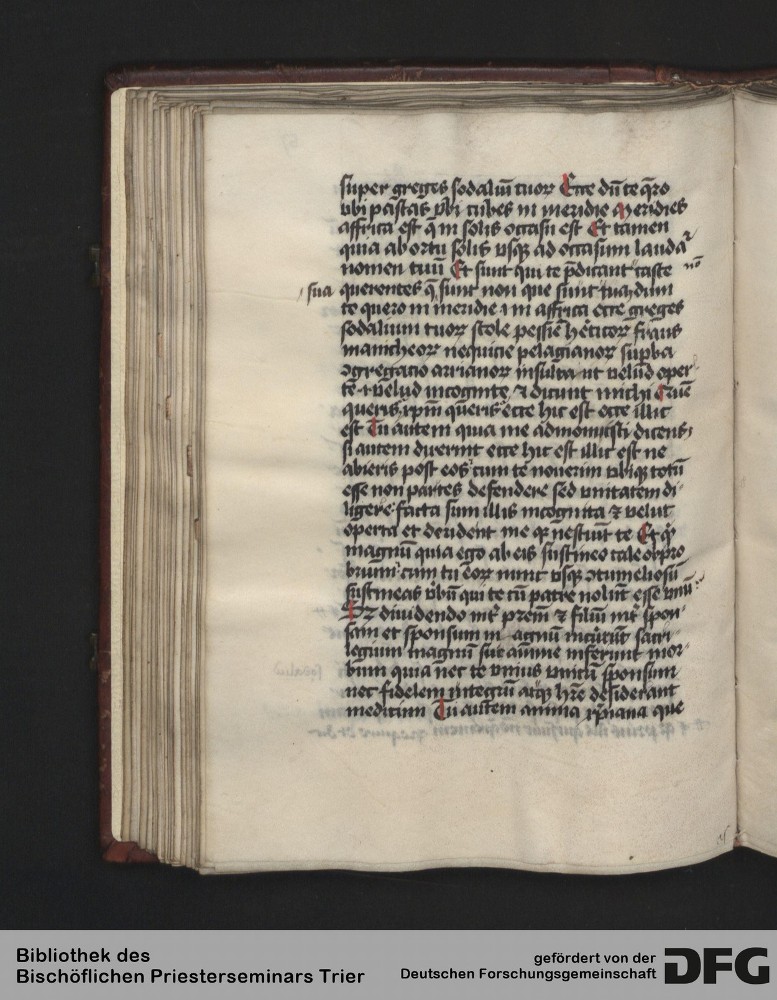 super greges sodaliū tuoꝝ Ecce dū te q̄ro
vbi pastas vbi cubes in meridie Meridies
affrica est q̄ in solis occasu est Et tamen
quia ab ortu solis vsqꝫ ad occasum lauda
nomen tuū Et sunt qui te p̄dicant caste nō
sua querentes q̄ sunt non que sunt
te quero in meridie ⁊ in affrica ecce greges
sodalium tuoꝝ stole pessīe hēticoꝝ fraus
manicheoꝝ nequicie pelagianoꝝ supba
ꝯgregacio arrianoꝝ insultant velud oper
te ⁊ velud incognite ⁊ dicunt michi
queris xp̄m queris ecce hic est ecce illic
est Tu autem quia me admonuisti dicens
si autem dixerint ecce hic est illic est ne
abieris post eos cum te nouerim vbiqꝫ totū
esse non partes defendere sed vnitatem di
ligere facta sum illis incognita ⁊ velut
operta et derident me qꝫ nesciūt te Et
magnū quia ego ab eis sustineo tale oppro
brium cum tu eoꝝ nunc vsqꝫ ꝯtumeliosū
sustineas vbū qui te cū patre nolūt esse vnū
dividendo int̄ p̄rem ⁊ filiū int̄ spon
sam et sponsum in agnū sacri
legium magnū sue aīmme inferunt mor
bum quia nec te vnius vnicū sponsum
nec fidelem integrū atqꝫ hr̄e desiderant
medicum Tu autem anima xp̄iana que
Bibliothek des
Bischöflichen Priesterseminars Trier
gefördert von der
Deutschen Forschungsgemeinschaft
DFG